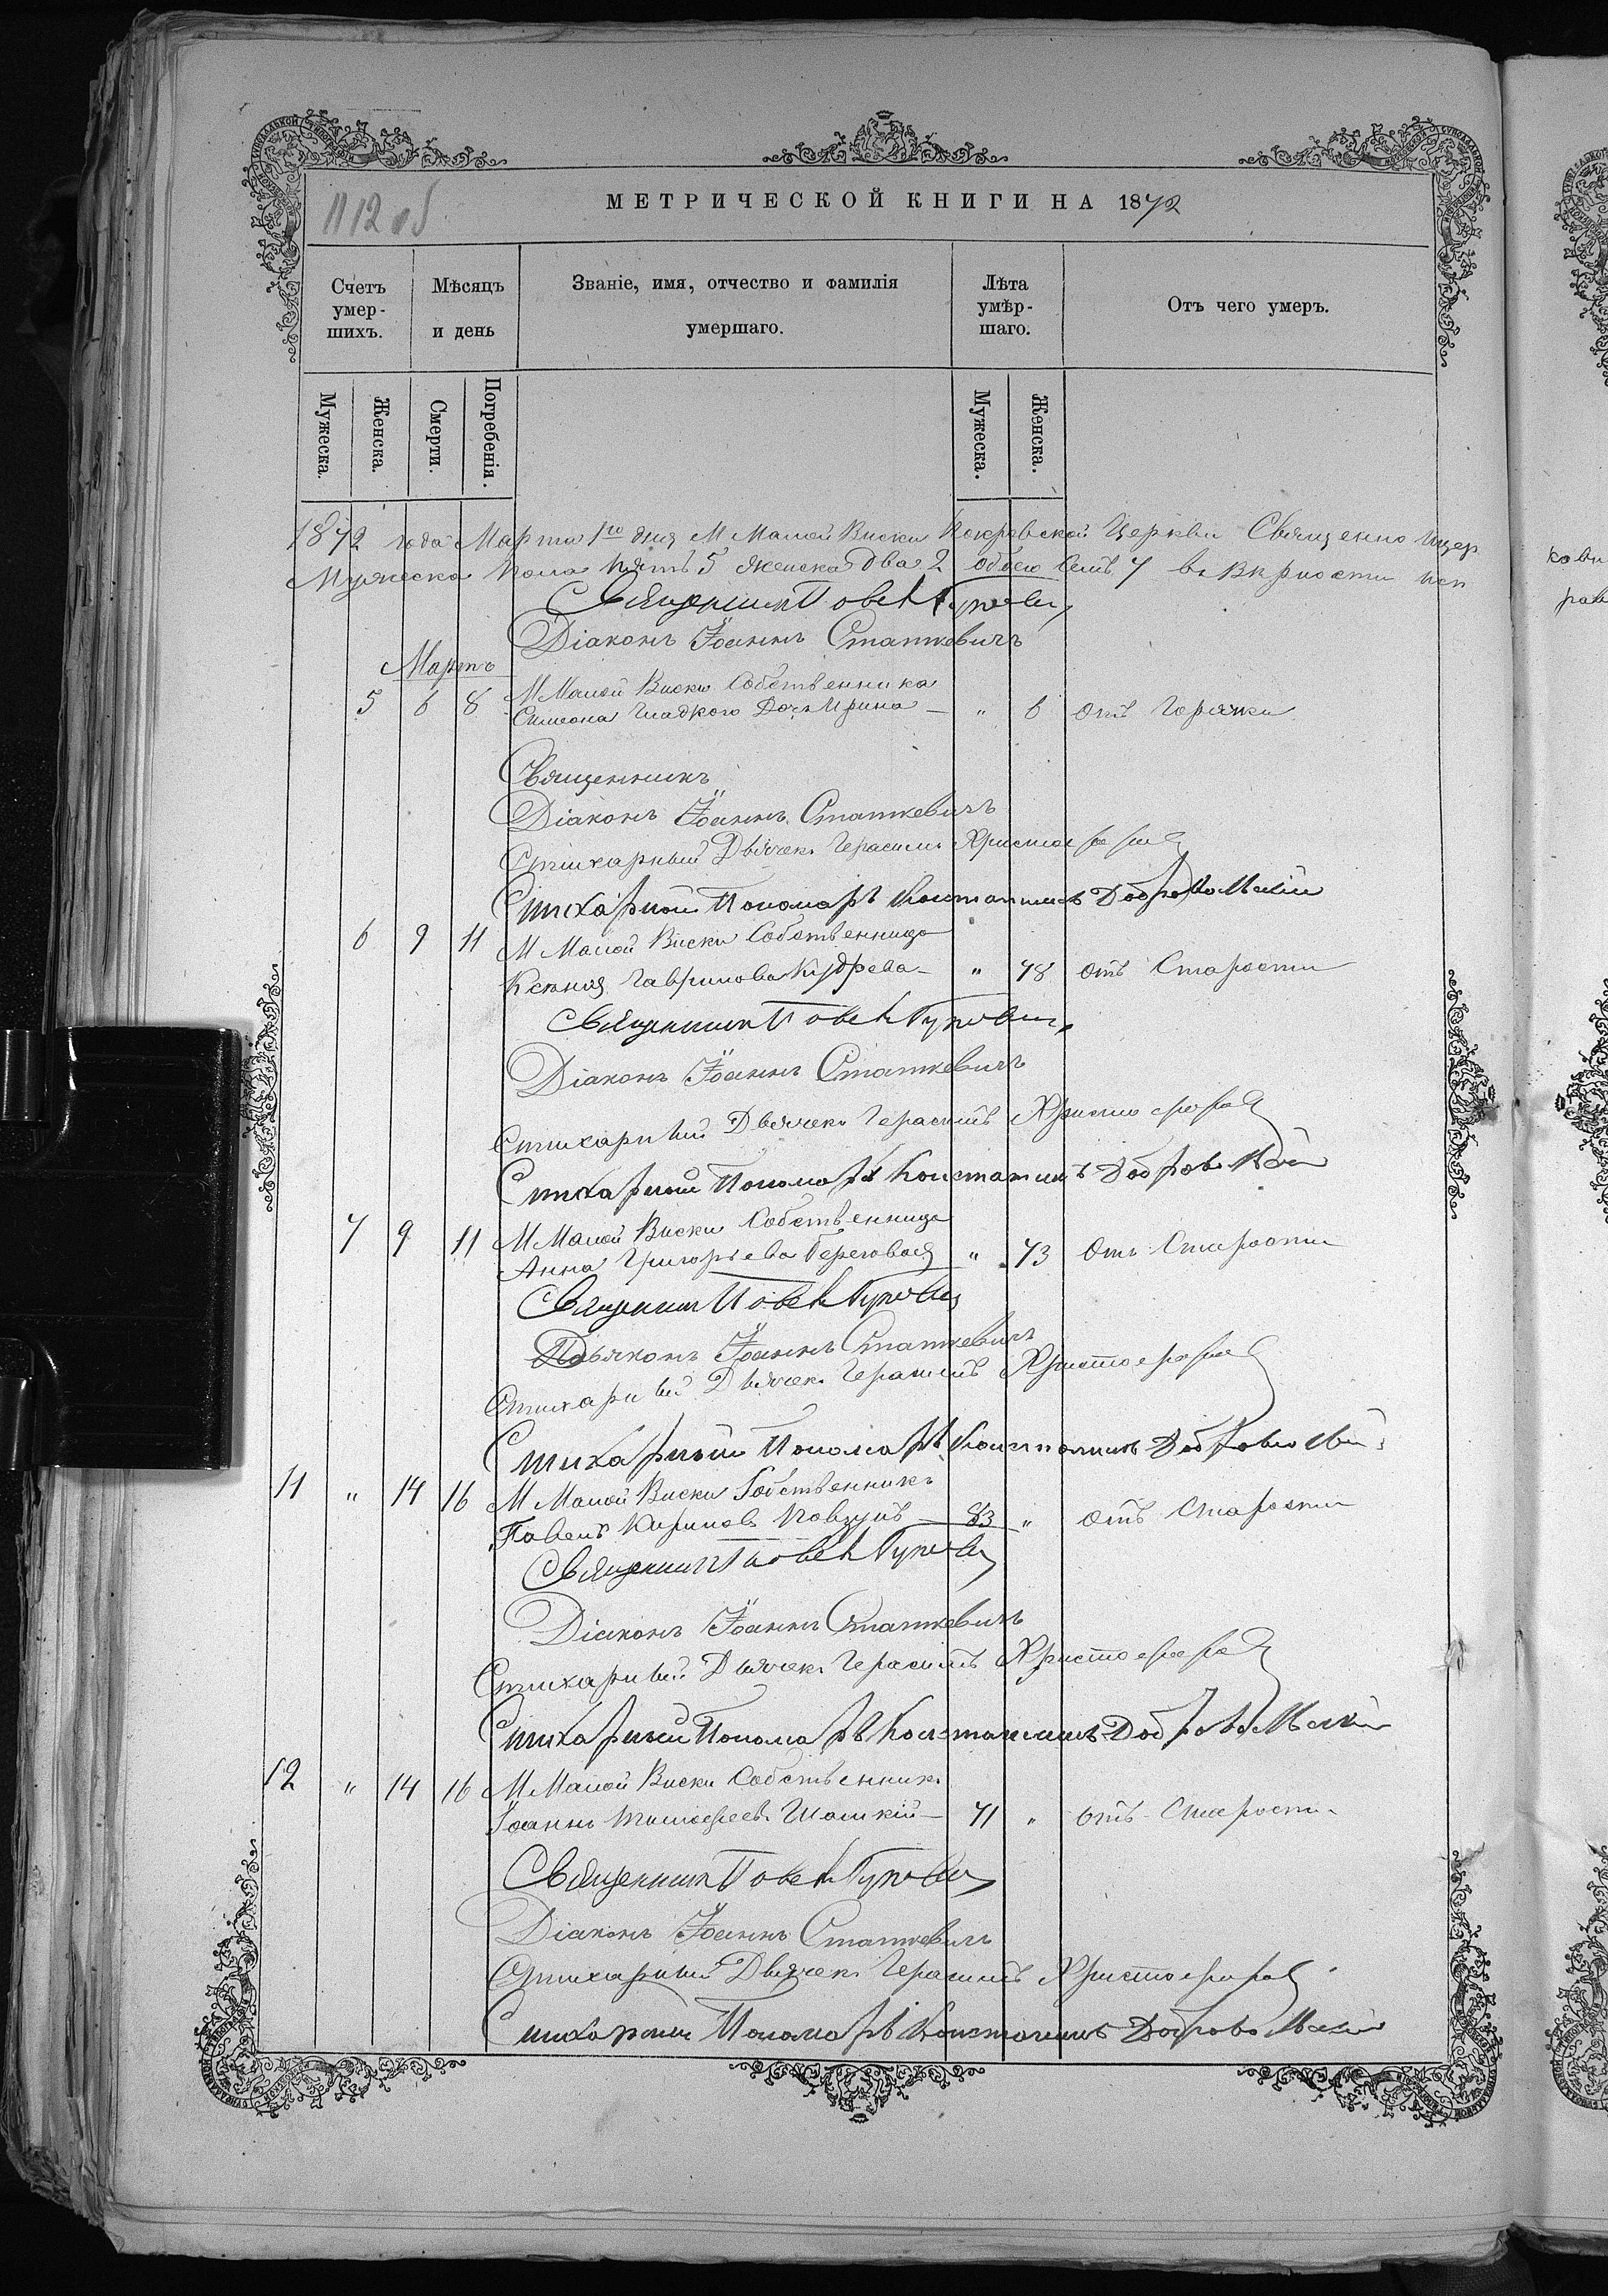 1112 об
МЕТРИЧЕСКОЙ КНИГИ НА 1872
Счетъ умер-шихъ.
Мѣсяцъ и день
Званіе, имя, отчество и фамилія умершаго.
Лѣта умѣр-шаго.
Отъ чего умеръ.
Мужеска. Женска. Смерти. Погребенія. Мужеска. Женска.
1872 года Марта 1го дня М Малой Виски Покровской Церкви Священно цер
Мужеска пола пять 5 Женска два 2 обоего семь 7 въ Вѣрности
Священникъ Павелъ
Діаконъ Іоаннъ Статкевичъ
Мартъ
5 6 8 М Малой Виски Собственника
Симеона Гладкого Дочь Ирина — " 6 Отъ Горячки
Священникъ
Діаконъ Іоаннъ Статкевичъ
Стихарный Дьячекъ Герасимъ Христофоровъ
Стихарный Пономарь Константинъ Добровольскій
6 9 11 М Малой Виски Собственница
Ксенія Гаврилова Кудрева — " 78 отъ Старости
Священникъ Павелъ
Діаконъ Іоаннъ Статкевичъ
Стихарный Дьячекъ Герасимъ Христофоровъ
Стихарный Пономарь Константинъ Добровольскій
7 9 11 М Малой Виски Собственница
Анна Григорьева Береговая " 73 Отъ Старости
Священникъ Павелъ
Дьяконъ Іоаннъ Статкевичъ
Стихарный Дьячекъ Герасимъ Христофоровъ
Стихарный Пономарь Константинъ Добровольскій
11 " 14 16 М Малой Виски Собственникъ
Павелъ Кириловъ — 83 " отъ Старости
Священникъ Павелъ
Діаконъ Іоаннъ Статкевичъ
Стихарный Дьячекъ Герасимъ Христофоровъ
Стихарный Пономарь Константинъ Добровольскій
12 " 14 16 М Малой Виски Собственникъ
Іоаннъ Тимофеевъ — 71 " отъ Старости
Священникъ Павелъ
Діаконъ Іоаннъ Статкевичъ
Стихарный Дьячекъ Герасимъ Христофоровъ
Стихарный Пономарь Константинъ Добровольскій